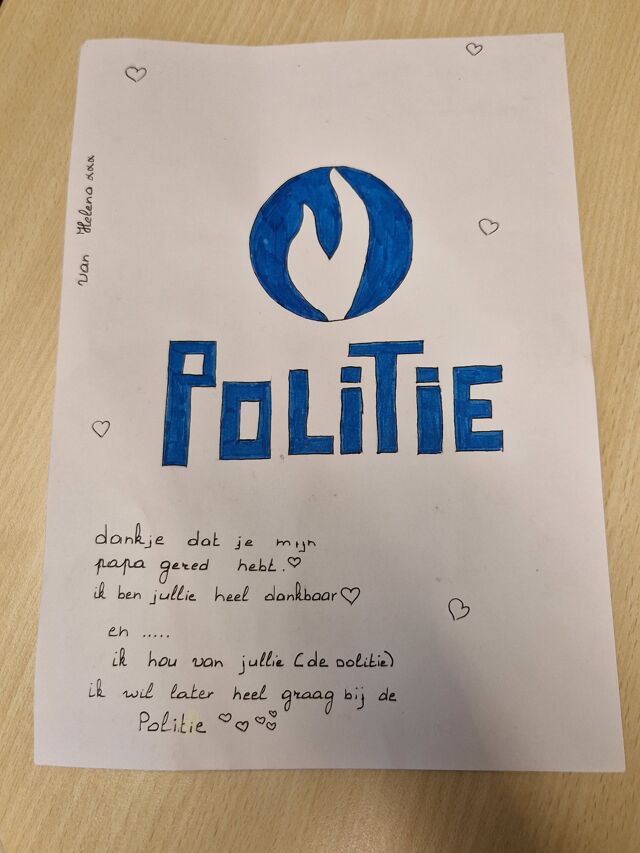 van Helena xxx
POLiTiE
dankje dat je mijn
papa gered hebt.
ik ben jullie heel dankbaar
en .....
ik hou van jullie (de politie)
ik wil later heel graag bij de
Politie